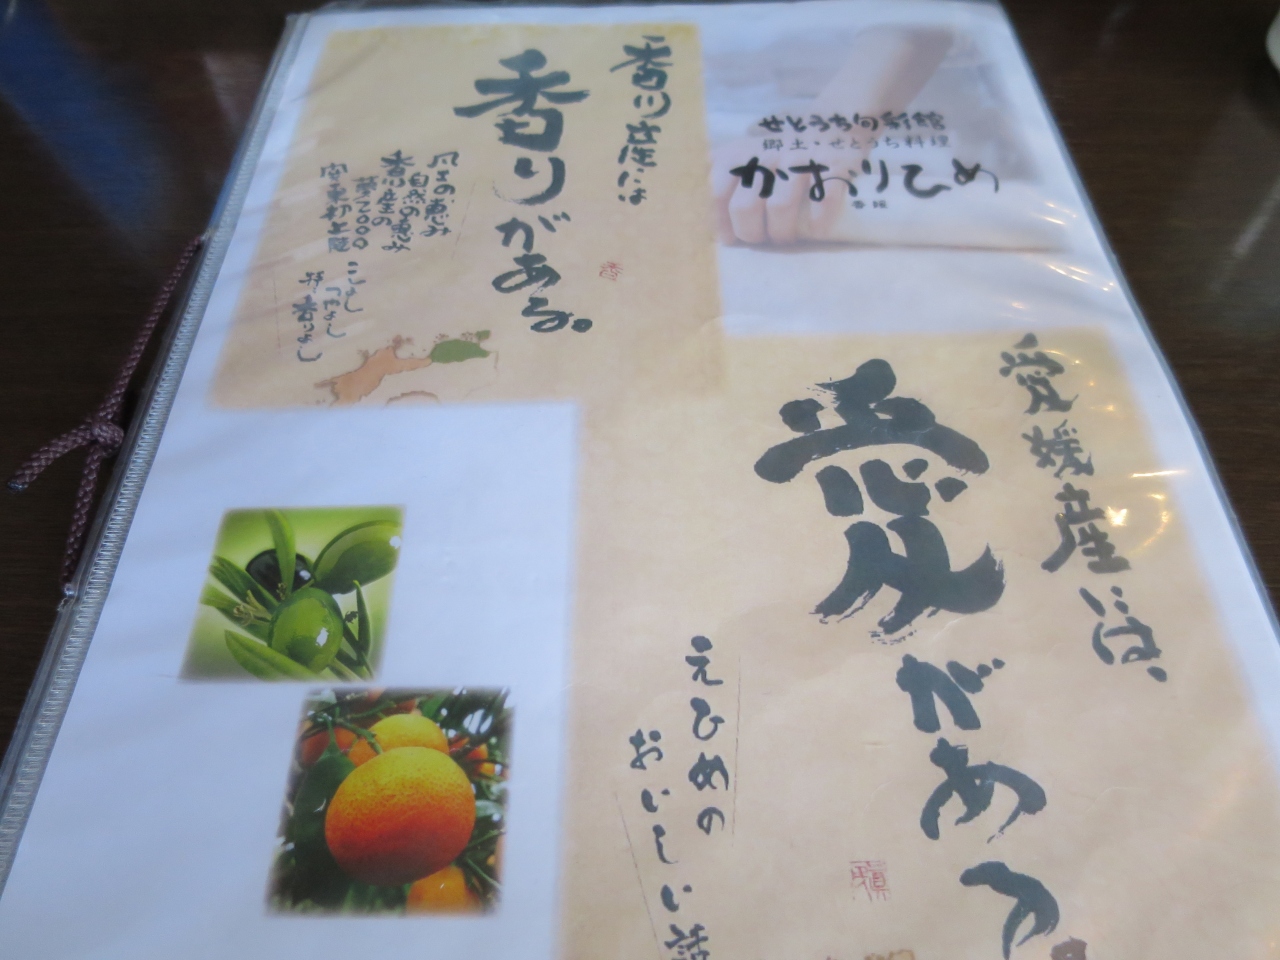 香川産には
香りがある。
風土の恵み
自然の恵み
香川産の
夢2000
せとうち旬彩館
郷土・せとうち料理
かおりひめ
香媛
愛媛産には、
愛がある
えひめの
おいしい話